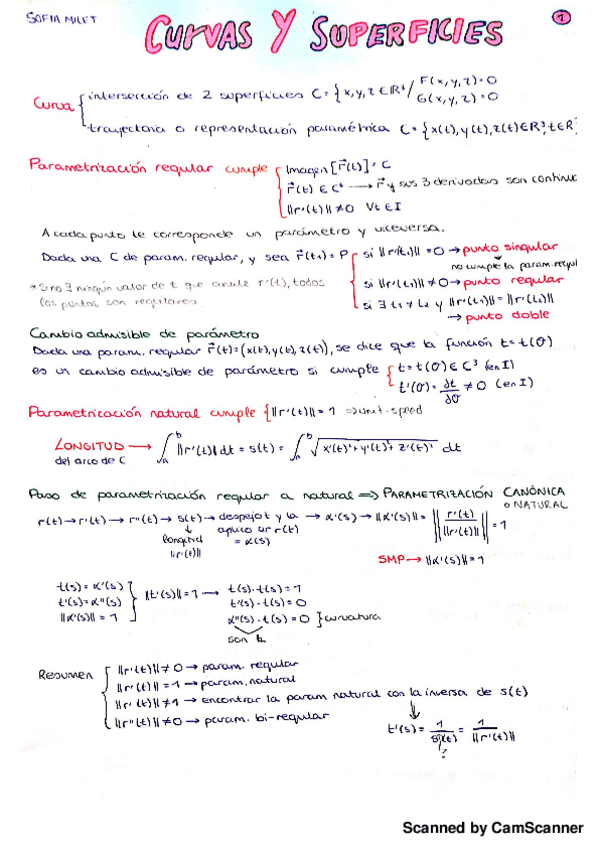 SOFIA MILET
1
CURVAS Y SUPERFICIES
Curva { intersección de 2 superficies C = { x,y,z ∈ ℝ³ / F(x,y,z)=0 G(x,y,z)=0
trayectoria o representación paramétrica C = { x(t), y(t), z(t) ∈ ℝ³, t ∈ ℝ
Parametrización regular cumple { Imagen [r⃗(t)] = C
r⃗(t) ∈ C³ → r⃗ y sus 3 derivadas son continuc
||r'(t)|| ≠ 0 ∀t ∈ I
A cada punto le corresponde un parámetro y viceversa.
Dada una C de param. regular, y sea r⃗(t₁) = P { si ||r'(t₁)|| = 0 → punto singular
no cumple la param. regul
* Si no ∃ ningún valor de t que anule r'(t), todos los puntos son regulares
si ||r'(t₁)|| ≠ 0 → punto regular
si ∃ t₁ ≠ t₂ y ||r'(t₁)|| = ||r'(t₂)||
→ punto doble
Cambio admisible de parámetro
Dada una param. regular r⃗(t) = (x(t), y(t), z(t)), se dice que la función t = t(θ)
es un cambio admisible de parámetro si cumple { t = t(θ) ∈ C³ (en I)
t'(θ) = dt/dθ ≠ 0 (en I)
Parametrización natural cumple { ||r'(t)|| = 1 ⇒ unit-speed
LONGITUD → ∫ₐᵇ ||r'(t)|| dt = s(t) = ∫ₐᵇ √(x'(t)² + y'(t)² + z'(t)²) dt
del arco de C
Paso de parametrización regular a natural ⇒ PARAMETRIZACIÓN CANÓNICA
o NATURAL
r(t) → r'(t) → r''(t) → s(t) → despejo t y la → α'(s) → ||α'(s)|| = || r'(t) / ||r'(t)|| || = 1
longitud aplico en r(t)
||r'(t)|| = α(s)
SMP → ||α'(s)|| = 1
t(s) = α'(s) } ||t'(s)|| = 1 → t(s) · t(s) = 1
t'(s) = α''(s) t'(s) · t(s) = 0
||α'(s)|| = 1 α''(s) · t(s) = 0 } curvatura
son ⊥
Resumen { ||r'(t)|| ≠ 0 → param. regular
||r'(t)|| = 1 → param. natural
||r'(t)|| ≠ 1 → encontrar la param natural con la inversa de s(t)
||r''(t)|| ≠ 0 → param. bi-regular
t'(s) = 1 / s'(t) = 1 / ||r'(t)||
?
Scanned by CamScanner